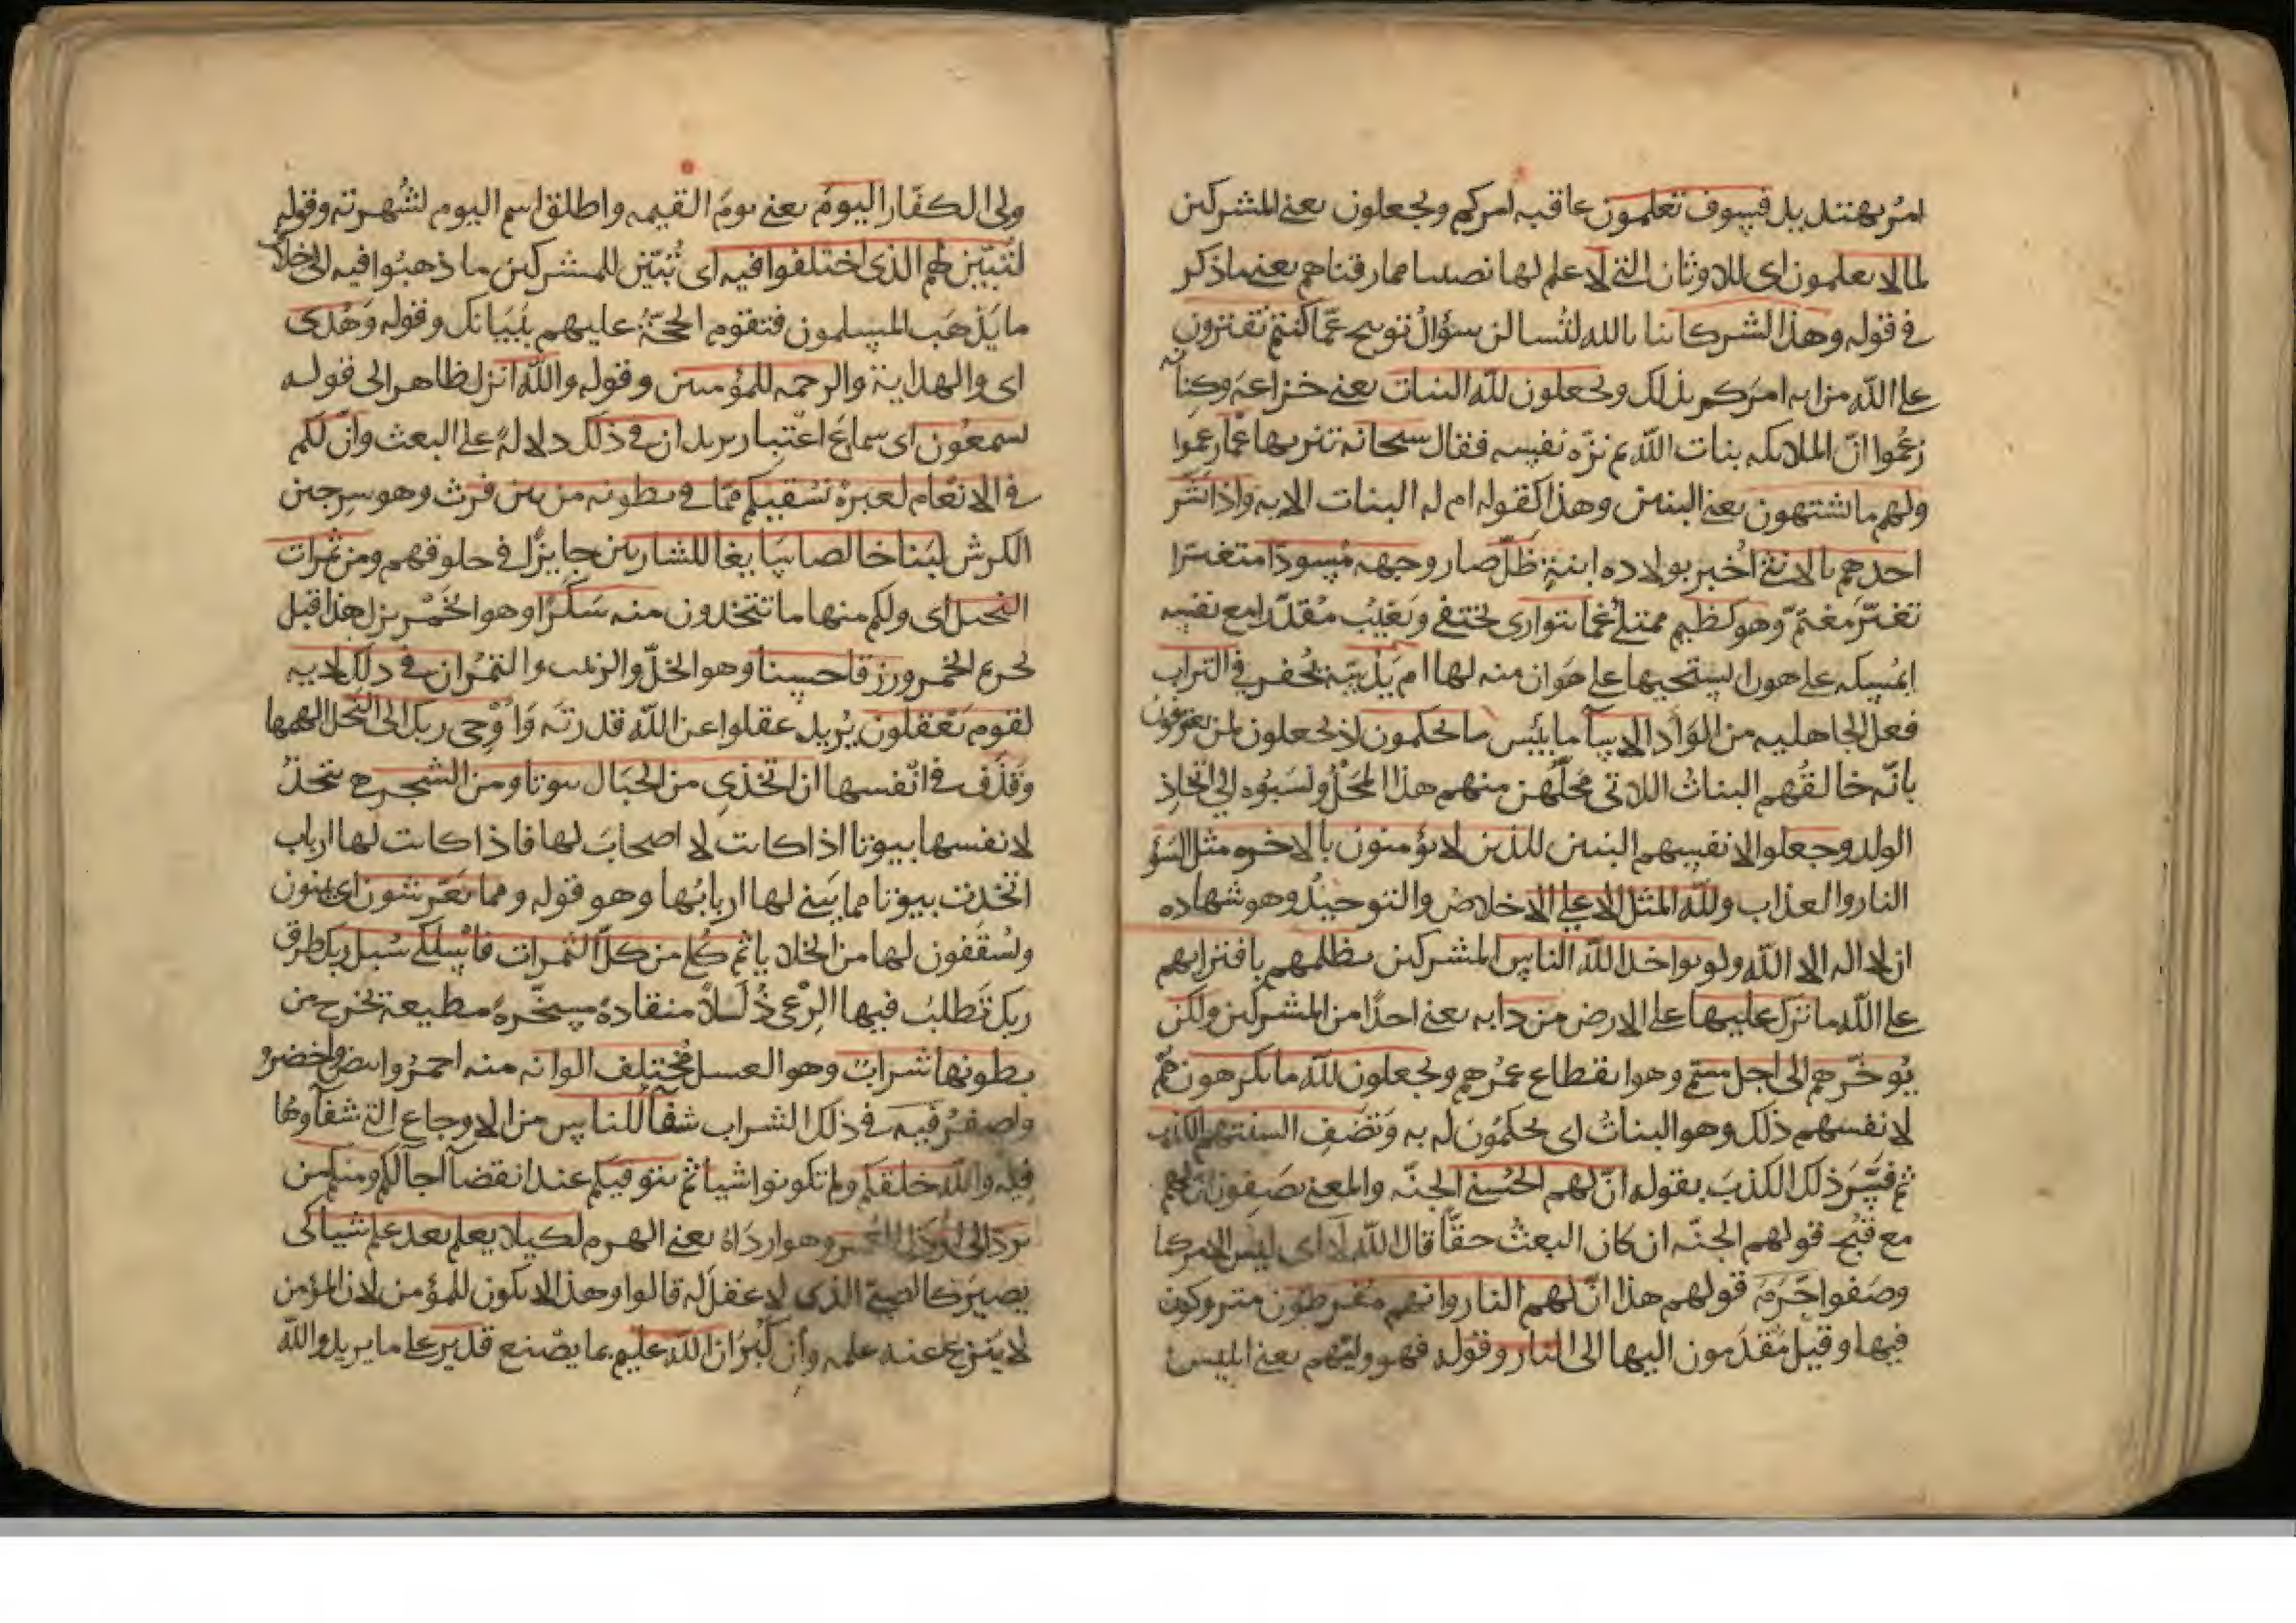 امر بهتدد بل فسوف تعلمون عاقبه امركم ويجعلون يعنى المشركين
لما لا يعلمون اى للاوثان التى لا علم لها نصيبا مما رزقناهم يعنى ما ذكر
فى قوله وهذا لشركائنا تالله لتسالن سؤال توبيخ عمّا كنتم تفترون
على الله من انه امركم بذلك ويجعلون لله البنات يعنى خزاعة وكنانه
زعموا انّ الملائكه بنات الله ثم نزّه نفسه فقال سبحانه تنزيها عمّا زعموا
ولهم ما يشتهون يعنى البنين وهذا كقوله ام له البنات الايه واذا بشّر
احدهم بالانثى اُخبر بولاده ابنةٍ ظلّ صار وجهه مسودّا متغيّرا
تغيّر مغتمّ وهو كظيم ممتلئ غما يتوارى يختفى وتغيّب مقدّرا مع نفسه
ايمسكه على هون ايستحييها على هَوان منه لها ام يدسّه يحفر فى التراب
فعل الجاهليه من الوَأد الا ساء ما بئس ما يحكمون اذ يجعلون لمن يعترفون
بانّه خالقُهم البناتُ اللاتى محلّهن منهم هذا المحلّ ونسَبوه الى اتخاذ
الولد وجعلوا لانفسهم البنين للذين لا يؤمنون بالاخره مثل السّوْء
النار والعذاب ولله المثل الاعلى الاخلاص والتوحيد وهو شهاده
ان لا اله الا الله ولو يواخذ الله الناس المشركين بظلمهم بافترائهم
على الله ما ترك عليها على الارض من دابه يعنى احدًا من المشركين ولكن
يُوخّرهم الى اجل مسمى وهو انقطاع عمُرهم ويجعلون لله ما يكرهون هم
لانفسهم ذلك وهو البناتُ اى يحكمُون له به وتصف السنتهم الكذب
ثم فسّر ذلك الكذب بقوله انّ لهم الحُسنى الجنّه والمعنى يصفون ان لهم
مع قُبح قولهم الجنّه ان كان البعث حقًّا قال الله لا اى ليس الامر كما
وصفوا جَرَمَ قولهم هذا انّ لهم النار وانهم مفرطون متروكون
فيها وقيل مُقدّمون اليها الى النار وقوله فهو وليّهم يعنى ابليس
ولى الكفّار اليومَ يعنى يومَ القيمه واطلق اسم اليوم لشُهرته وقوله
لتُبيّن لهم الذى اختلفوا فيه اى تُبيّن للمشركين ما ذهبُوا فيه الى خلاف
ما يَذهَب المسلمون فتقوم الحجّةُ عليهم بِبَيانك وقوله وَهُدى
اى والهداية والرحمه للمؤمنين وقوله والله انزل ظاهر الى قوله
يسمعُون اى سماع اعتبار يريد ان فى ذلك دلالةً على البعث وانّ لكم
فى الانعام لعبرةً نسقيكم ممّا فى بطونه من بين فرث وهو سِرجين
الكرش لبَنا خالصا سَايغا للشاربين جايزًا فى حلوقهم ومن ثمرات
النخيل اى ولكم منها ما تتخذون منه سَكَرًا وهو الخَمْر نزل هذا قبل
تحريم الخمر ورزقا حسنا وهو الخلّ والزبيب والتمْر ان فى ذلك لايه
لقوم يَعْقلون يُريد عقلوا عن الله قدرتَه وَاَوْحى ربك الى النحل الهمها
وقَذَف فى انْفسها ان اتخذى من الجبَال بيوتا ومن الشجر هى تتخذ
لانفسها بيوتا اذا كانت لا اصحابَ لها فاذا كانت لها ارباب
اتخذت بيوتا مما يَبنى لها اربابُها وهو قوله ومما يَعْرشون اى يبنون
ويُسقّفون لها من الخلايا ثم كُلى من كلّ الثمرات فاسْلكى سُبل ربك طرق
ربك تَطلب فيها الرّعى ذُلُلًا منقادةً مسخّرةً مطيعة يخرج من
بطونها شراب وهو العسل مُختلف الوانه منه احمرُ وابيض واخضر و
واصفر فيه فى ذلك الشراب شفآ للناس من الاوجاع التى شفآوها
فيه والله خلقكم ولم تكونوا شيا ثم يتوفيكم عند انقضآ آجالكم ومنكم من
يردّ الى ارذل العُمر وهو ارداهُ يعنى الهرم لكيلا يعلم بعد علم شيا كى
يصيرَ كالصبىّ الذى لا عقل له قالوا وهذا لا يكون للمؤمن لان المؤمن
لا يُنزع عنه علمه وان كَبُر ان الله عليم بما يصْنع قدير على ما يريد والله